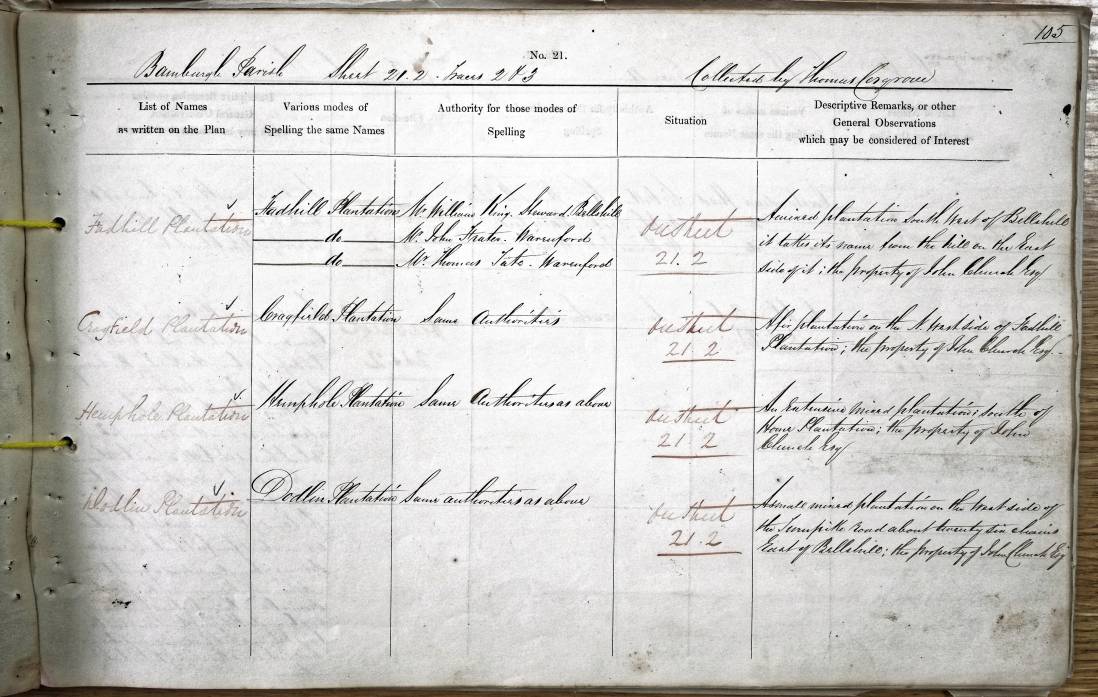 105
No. 21.
Bamburgh Parish Sheet 21.2. Traces 2 & 3 Collected by Thomas Cosgrove
List of Names
as written on the Plan
Various modes of
Spelling the same Names
Authority for those modes of
Spelling
Situation
Descriptive Remarks, or other
General Observations
which may be considered of Interest
Fadhill Plantation
Fadhill Plantation
do
do
Mr. William King. Steward. Bellshill
Mr. John Frater. Warenford
Mr. Thomas Tate. Warenford
On Sheet
21.2
A mixed plantation south West of Bellshill
it takes its name from the hill on the East
side of it; the property of John Church Esq
Cragfield Plantation
Cragfield Plantation
Same Authorities
On Sheet
21 2
A fir plantation on the N. West side of Fadhill
Plantation; the property of John Church Esq.
Hemphole Plantation
Hemphole Plantation
Same Authorities as above
On Sheet
21 2
An Extensive mixed plantation; south of
Home Plantation; the property of John
Church Esq
Dodlin Plantation
Dodlin Plantation
Same authorities as above
On Sheet
21.2
A small mixed plantation on the West side of
the Turnpike road about twenty six chains
East of Bellshill; the property of John Church Esq